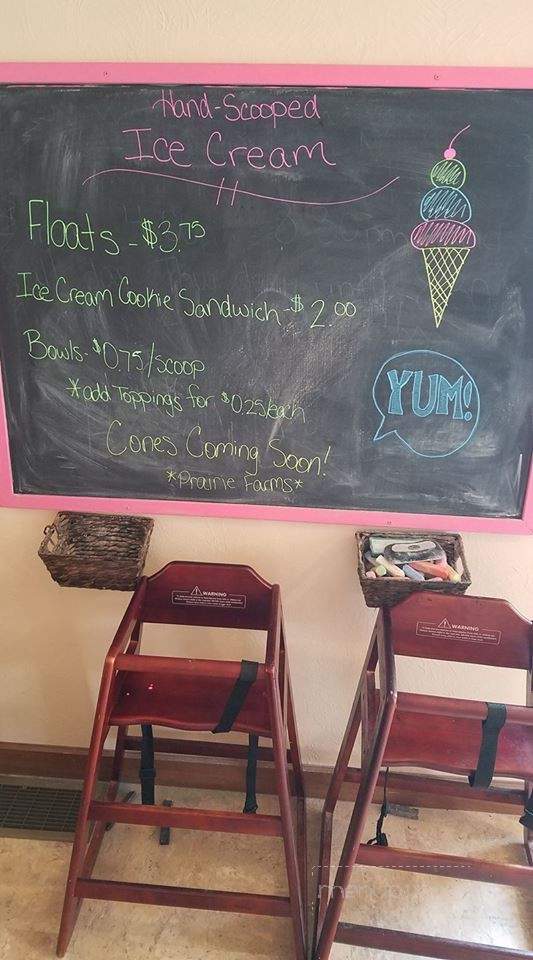 Hand-Scooped
Ice Cream
Floats - $3.75
Ice Cream Cookie Sandwich - $2.00
Bowls - $0.75/scoop
*add Toppings for $0.25/each
Cones Coming Soon!
*Prairie Farms*
YUM!
WARNING
WARNING